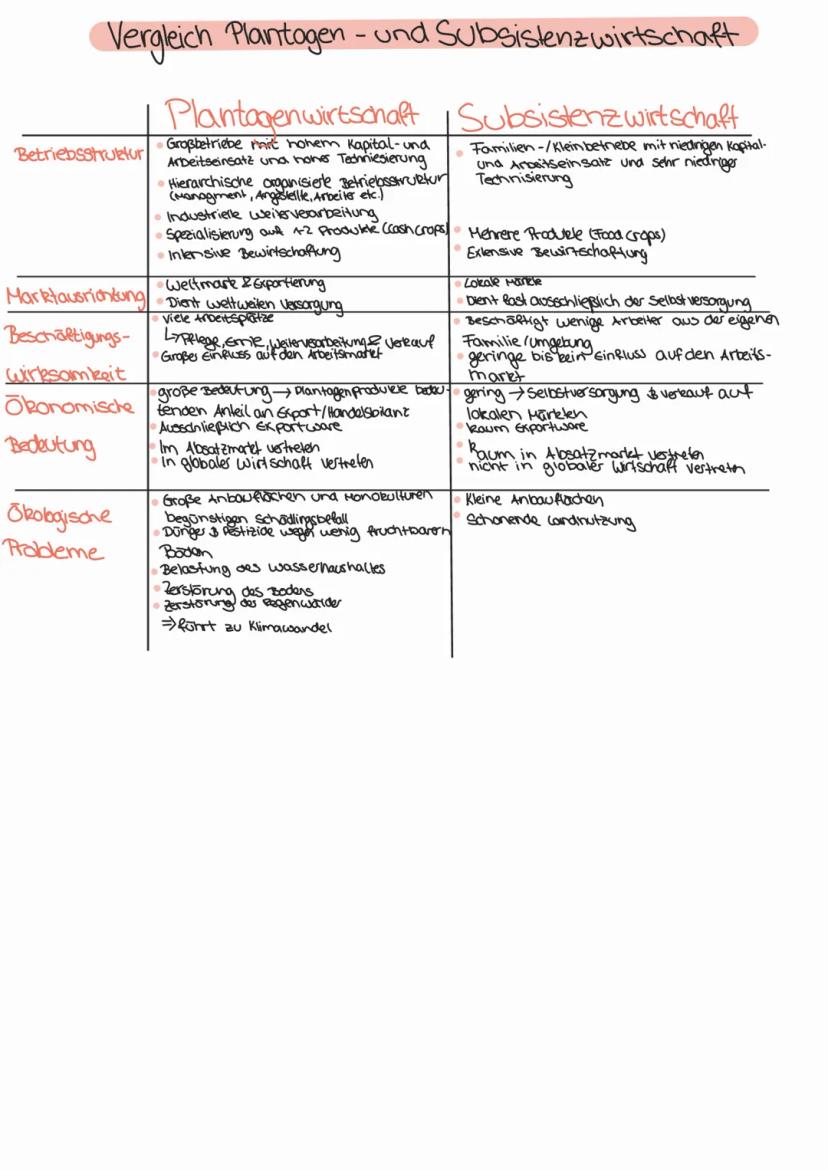 Vergleich Plantagen - und Subsistenzwirtschaft
Plantagenwirtschaft
Subsistenzwirtschaft
Betriebsstruktur
Großbetriebe mit hohem Kapital- und
Arbeitseinsatz und hoher Techniesierung
Hierarchische organisierte Betriebsstruktur
(Managment, Angestellte, Arbeiter etc.)
Industrielle Weiterverarbeitung
Spezialisierung auf 1-2 Produkte (Cash crops)
Intensive Bewirtschaftung
Familien -/Kleinbetriebe mit niedrigen Kapital-
und Arbeitseinsatz und sehr niedriger
Technisierung
Mehrere Produkte (Food crops)
Extensive Bewirtschaftung
Marktausrichtung
Weltmarkt & Exportierung
Dient weltweiten Versorgung
Lokale Märkte
Dient fast ausschließlich der Selbstversorgung
Beschäftigungs-
wirksamkeit
Viele Arbeitsplätze
↳ Pflege, Ernte, Weiterverarbeitung & Verkauf
Großer Einfluss auf den Arbeitsmarkt
Beschäftigt wenige Arbeiter aus der eigenen
Familie/Umgebung
geringe bis kein Einfluss auf den Arbeits-
markt
Ökonomische
Bedeutung
große Bedeutung → Plantagenprodukte bedeu-
tenden Anteil an Export/Handelsbilanz
Ausschließlich Exportware
Im Absatzmarkt vertreten
In globaler Wirtschaft vertreten
gering → Selbstversorgung & verkauf auf
lokalen Märkten
kaum Exportware
kaum in Absatzmarkt vertreten
nicht in globaler Wirtschaft vertreten
Ökologische
Probleme
Große Anbauflächen und Monokulturen
begünstigen Schädlingsbefall
Dünger & Pestizide wegen wenig fruchtbaren
Böden
Belastung des Wasserhaushaltes
Zerstörung des Bodens
Zerstörung der Regenwälder
⇒ führt zu Klimawandel
Kleine Anbauflächen
Schonende Landnutzung